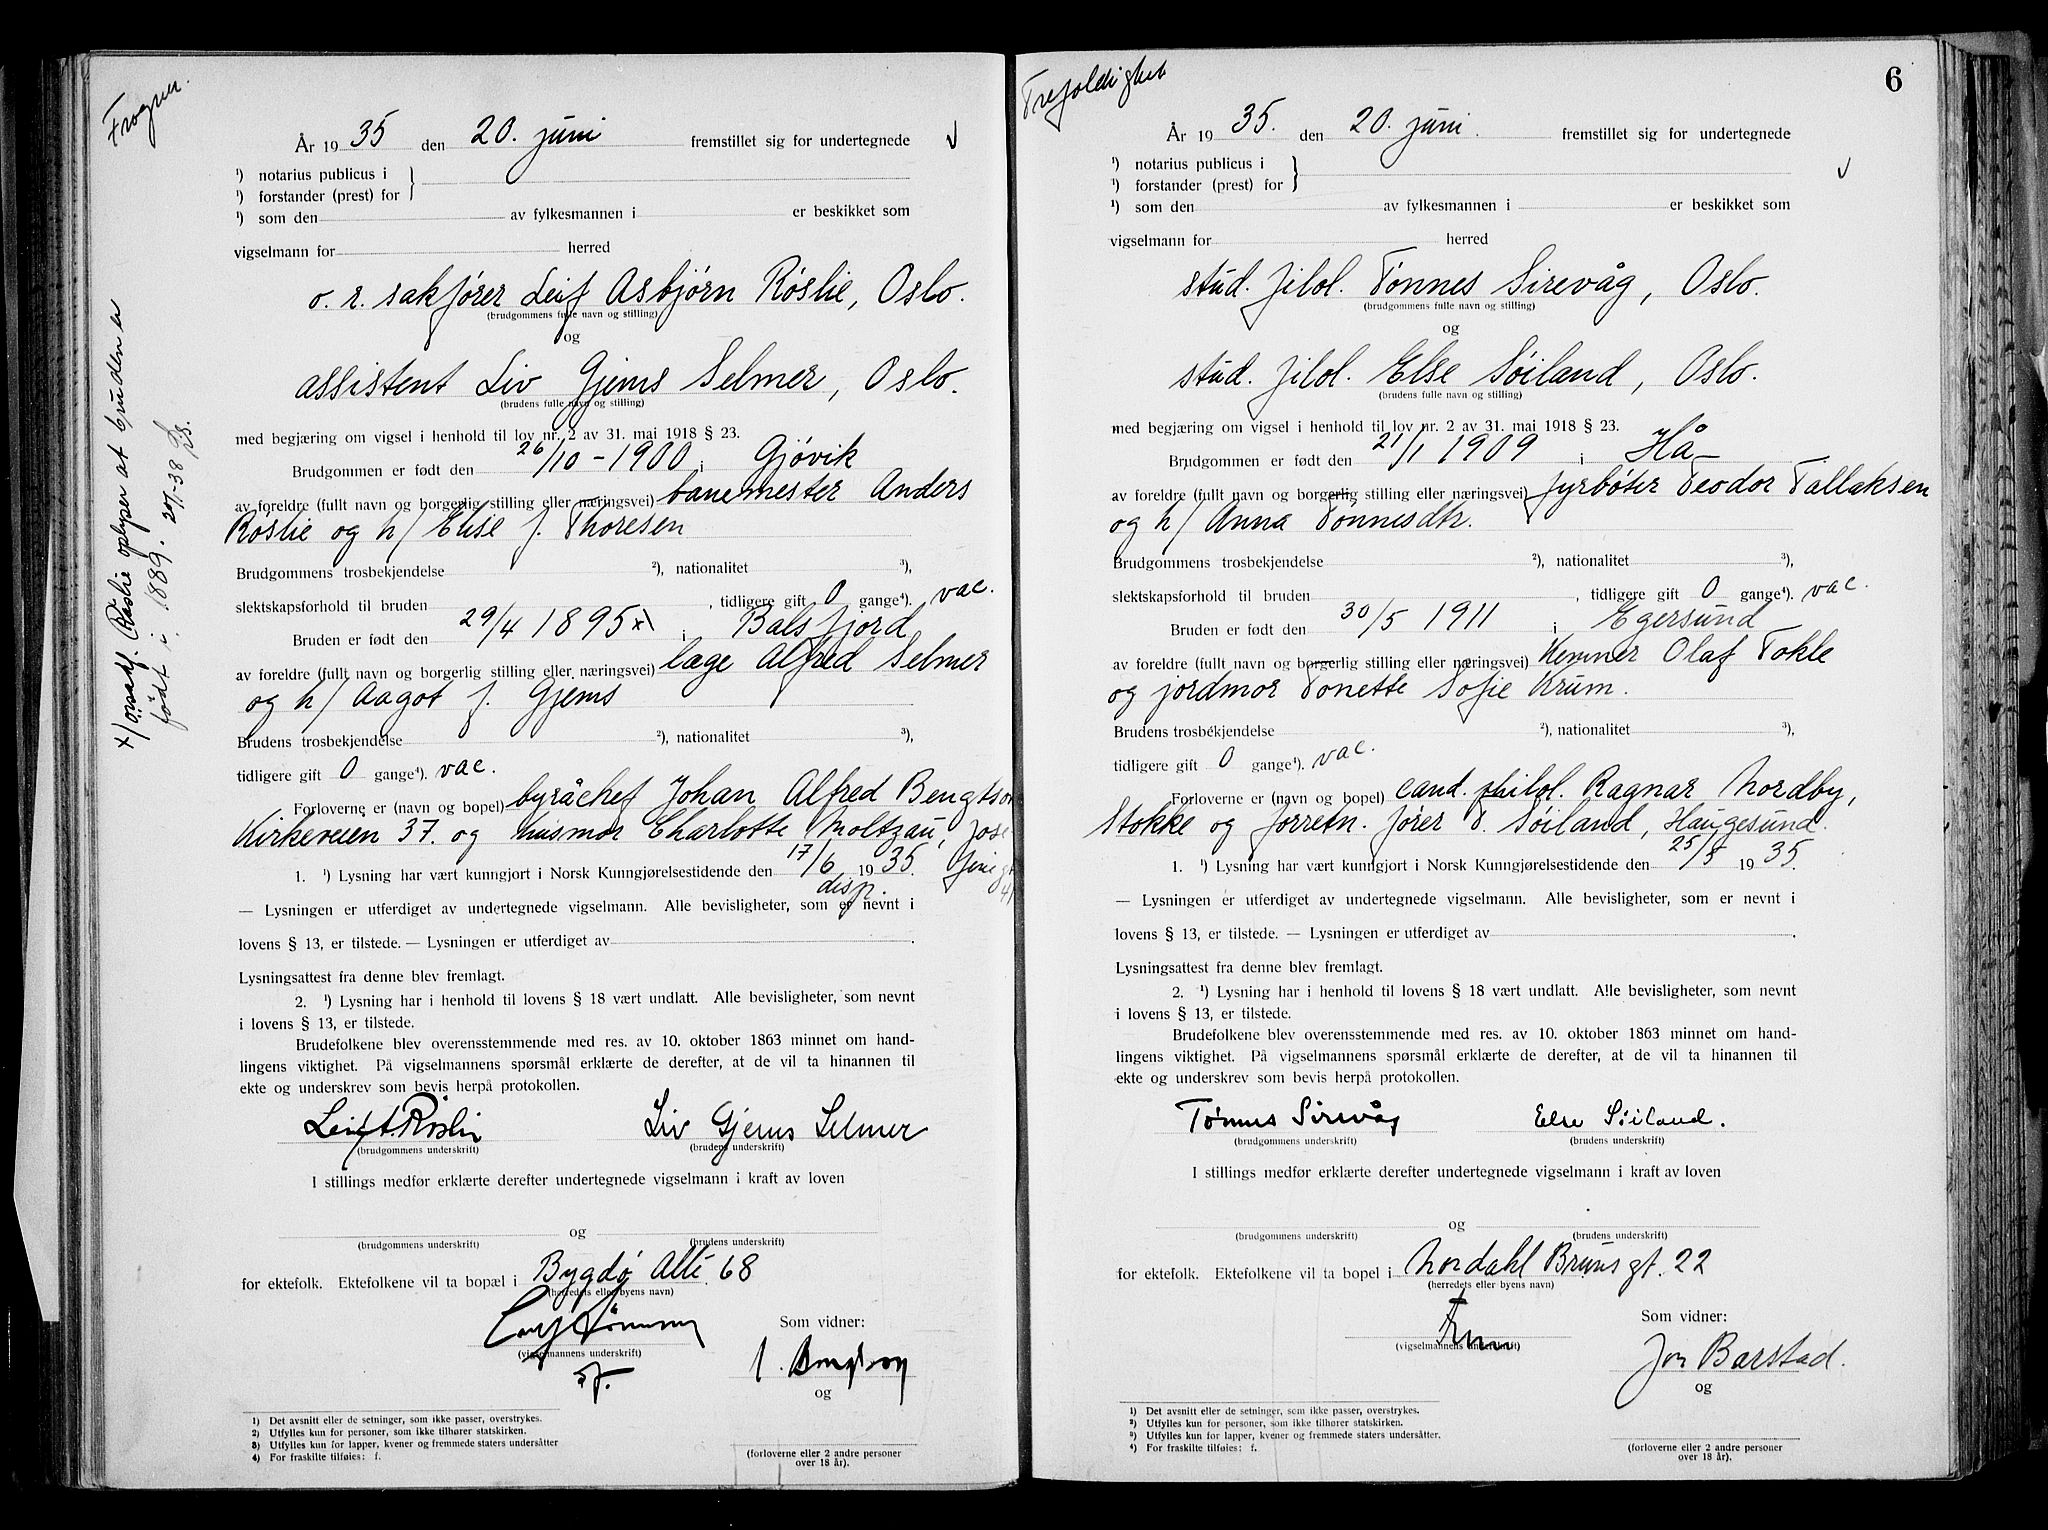 Frogner.
År 1935 den 20. juni fremstillet sig for undertegnede
¹) notarius publicus i
¹) forstander (prest) for
¹) som den av fylkesmannen i er beskikket som
vigselmann for herred
o. r. sakfører Leif Asbjørn Røslie, Oslo.
(brudgommens fulle navn og stilling)
og
assistent Liv Gjems Selmer, Oslo.
(brudens fulle navn og stilling)
med begjæring om vigsel i henhold til lov nr. 2 av 31. mai 1918 § 23.
Brudgommen er født den 26/10 - 1900 i Gjøvik
av foreldre (fullt navn og borgerlig stilling eller næringsvei) banemester Anders
Røslie og h/ Elise f. Thoresen
Brudgommens trosbekjendelse ²), nationalitet ³),
slektskapsforhold til bruden , tidligere gift 0 gange⁴). vac.
Bruden er født den 29/4 1895 x) i Balsfjord
av foreldre (fullt navn og borgerlig stilling eller næringsvei) læge Alfred Selmer
og h/ Aagot f. Gjems
Brudens trosbekjendelse ²), nationalitet ³),
tidligere gift 0 gange⁴). vac.
Forloverne er (navn og bopel) byråchef Johan Alfred Bengtson
Kirkeveien 37. og husmor Charlotte Moltzau, Jose
fines gt 41
1. ¹) Lysning har vært kunngjort i Norsk Kunngjørelsestidende den 17/6 1935.
disp.
— Lysningen er utferdiget av undertegnede vigselmann. Alle bevisligheter, som er nevnt i
lovens § 13, er tilstede. — Lysningen er utferdiget av .
Lysningsattest fra denne blev fremlagt.
2. ¹) Lysning har i henhold til lovens § 18 vært undlatt. Alle bevisligheter, som nevnt
i lovens § 13, er tilstede.
Brudefolkene blev overensstemmende med res. av 10. oktober 1863 minnet om hand-
lingens viktighet. På vigselmannens spørsmål erklærte de derefter, at de vil ta hinannen til
ekte og underskrev som bevis herpå protokollen.
Leif A. Røslie Liv Gjems Selmer
(brudgommens underskrift) (brudens underskrift)
I stillings medfør erklærte derefter undertegnede vigselmann i kraft av loven
og
(brudgommens underskrift) (brudens underskrift)
for ektefolk. Ektefolkene vil ta bopæl i Bygdø Allé 68
(herredets eller byens navn)
Som vidner:
(vigselmannens underskrift)
og
1) Det avsnitt eller de setninger, som ikke passer, overstrykes.
2) Utfylles kun for personer, som ikke tilhører statskirken.
3) Utfylles kun for lapper, kvener og fremmede staters undersåtter
4) For fraskilte tilføies: f.
(forloverne eller 2 andre personer
over 18 år).
x) o.r.sakf. Røslie oplyser at bruden er
født i 1889. 20/1-38
Trefoldighet
6
År 1935. den 20. juni. fremstillet sig for undertegnede
¹) notarius publicus i
¹) forstander (prest) for
¹) som den av fylkesmannen i er beskikket som
vigselmann for herred
stud. filol. Tønnes Sirevåg, Oslo.
(brudgommens fulle navn og stilling)
og
stud. filol. Else Søiland, Oslo.
(brudens fulle navn og stilling)
med begjæring om vigsel i henhold til lov nr. 2 av 31. mai 1918 § 23.
Brudgommen er født den 21/1 1909 i Hå
av foreldre (fullt navn og borgerlig stilling eller næringsvei) fyrbøter Teodor Tallaksen
og h/ Anna Tønnesdtr.
Brudgommens trosbekjendelse ²), nationalitet ³),
slektskapsforhold til bruden , tidligere gift 0 gange⁴). vac.
Bruden er født den 30/5 1911 i Egersund
av foreldre (fullt navn og borgerlig stilling eller næringsvei) kemner Olaf Tokle
og jordmor Tonette Sofie Krum.
Brudens trosbekjendelse ²), nationalitet ³),
tidligere gift 0 gange⁴). vac.
Forloverne er (navn og bopel) cand. philol. Ragnar Nordby,
Stokke og forretn. fører T. Søiland, Haugesund.
1. ¹) Lysning har vært kunngjort i Norsk Kunngjørelsestidende den 25/5 1935.
— Lysningen er utferdiget av undertegnede vigselmann. Alle bevisligheter, som er nevnt i
lovens § 13, er tilstede. — Lysningen er utferdiget av .
Lysningsattest fra denne blev fremlagt.
2. ¹) Lysning har i henhold til lovens § 18 vært undlatt. Alle bevisligheter, som nevnt
i lovens § 13, er tilstede.
Brudefolkene blev overensstemmende med res. av 10. oktober 1863 minnet om hand-
lingens viktighet. På vigselmannens spørsmål erklærte de derefter, at de vil ta hinannen til
ekte og underskrev som bevis herpå protokollen.
Tønnes Sirevåg Else Söiland.
(brudgommens underskrift) (brudens underskrift)
I stillings medfør erklærte derefter undertegnede vigselmann i kraft av loven
og
(brudgommens underskrift) (brudens underskrift)
for ektefolk. Ektefolkene vil ta bopel i Nordahl Bruns gt. 22
(herredets eller byens navn)
Som vidner:
(vigselmannens underskrift)
Jon Barstad.
og
1) Det avsnitt eller de setninger, som ikke passer, overstrykes.
2) Utfylles kun for personer, som ikke tilhører statskirken.
3) Utfylles kun for lapper, kvener og fremmede staters undersåtter.
4) For fraskilte tilføies: f.
(forloverne eller 2 andre personer
over 18 år).